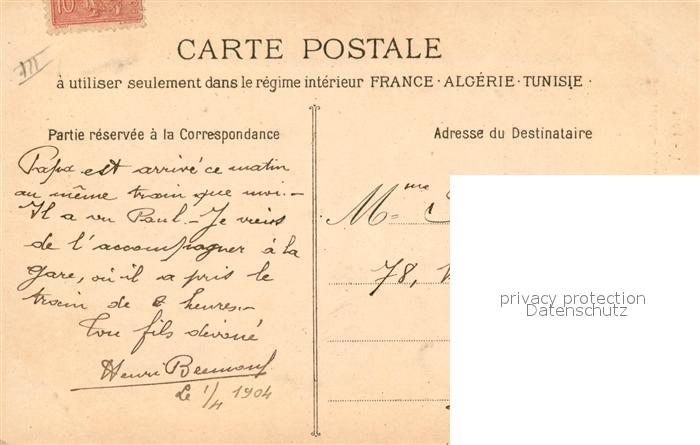 10
CARTE POSTALE
à utiliser seulement dans le régime intérieur FRANCE · ALGÉRIE · TUNISIE ·
Partie réservée à la Correspondance
Adresse du Destinataire
Papa est arrivé ce matin
au même train que moi. -
Il a vu Paul. - Je viens
de l'accompagner à la
gare, où il a pris le
train de 6 heures. -
Ton fils dévoué
Henri
Le 1/4 1904
Mme
78,
privacy protection
Datenschutz